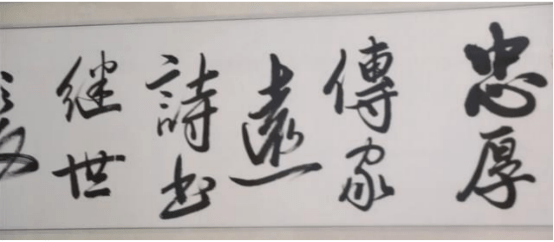 忠厚
傳家
遠
詩書
继世